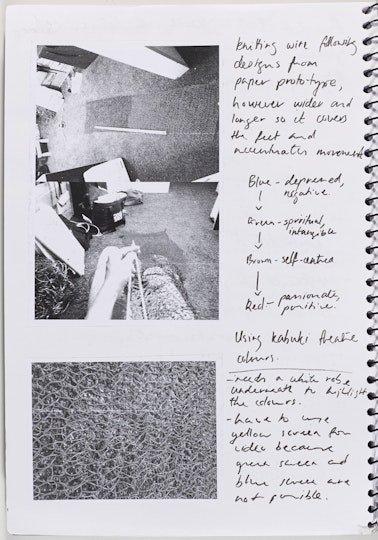 Knitting wire following
designs from
paper prototype,
however wider and
longer so it covers
the feet and
accentuates movement
Blue - depressed,
negative
Green - spiritual,
intangible
Brown - self-centred
Red - passionate,
punitive.
Using kabuki theatre
colours.
- needs a white robe
underneath to highlight
the colours.
- have to use
yellow screen for
video because
green screen and
blue screen are
not possible.